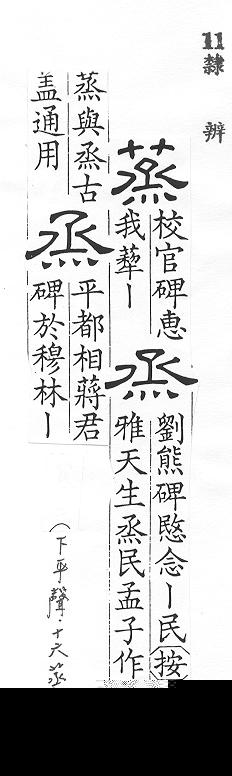 11 隸 辨
蒸
校官碑惠
我丨
烝
劉熊碑愍念丨民(按)
雅天生烝民孟子作
蒸與烝古
盖通用
烝
平都相蔣君
碑於穆林丨
(下平聲·十六蒸